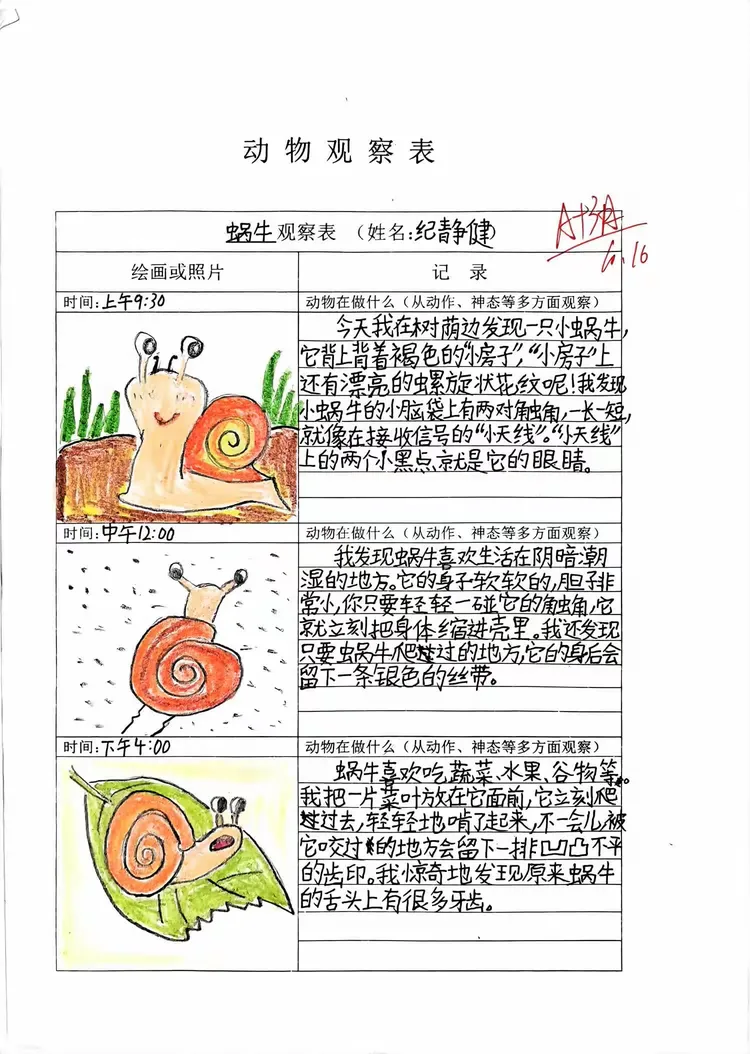 动物观察表
蜗牛观察表 (姓名:纪静健)
绘画或照片 记 录
时间:上午9:30 动物在做什么(从动作、神态等多方面观察)
今天我在树荫边发现一只小蜗牛,
它背上背着褐色的“小房子”,“小房子”上
还有漂亮的虫累旋状花纹呢!我发现
小蜗牛的小脑袋上有两对角虫角,一长一短,
就像在接收信号的“小天线”。“小天线”
上的两个小黑点就是它的眼睛。
时间:中午12:00 动物在做什么(从动作、神态等多方面观察)
我发现蜗牛喜欢生活在阴暗潮
湿的地方。它的身子软软的,胆子非
常小,你只要轻轻一碰它的触角,它
就立刻把身体缩进壳里。我还发现
只要蜗牛爬过的地方,它的身后会
留下一条银色的丝带。
时间:下午4:00 动物在做什么(从动作、神态等多方面观察)
蜗牛喜欢吃蔬菜、水果、谷物等。
我把一片菜叶放在它面前,它立刻爬
过去,轻轻地啃了起来,不一会儿,被
它咬过的地方会留下一排凹凸不平
的齿印。我惊奇地发现原来蜗牛
的舌头上有很多牙齿。
6.16